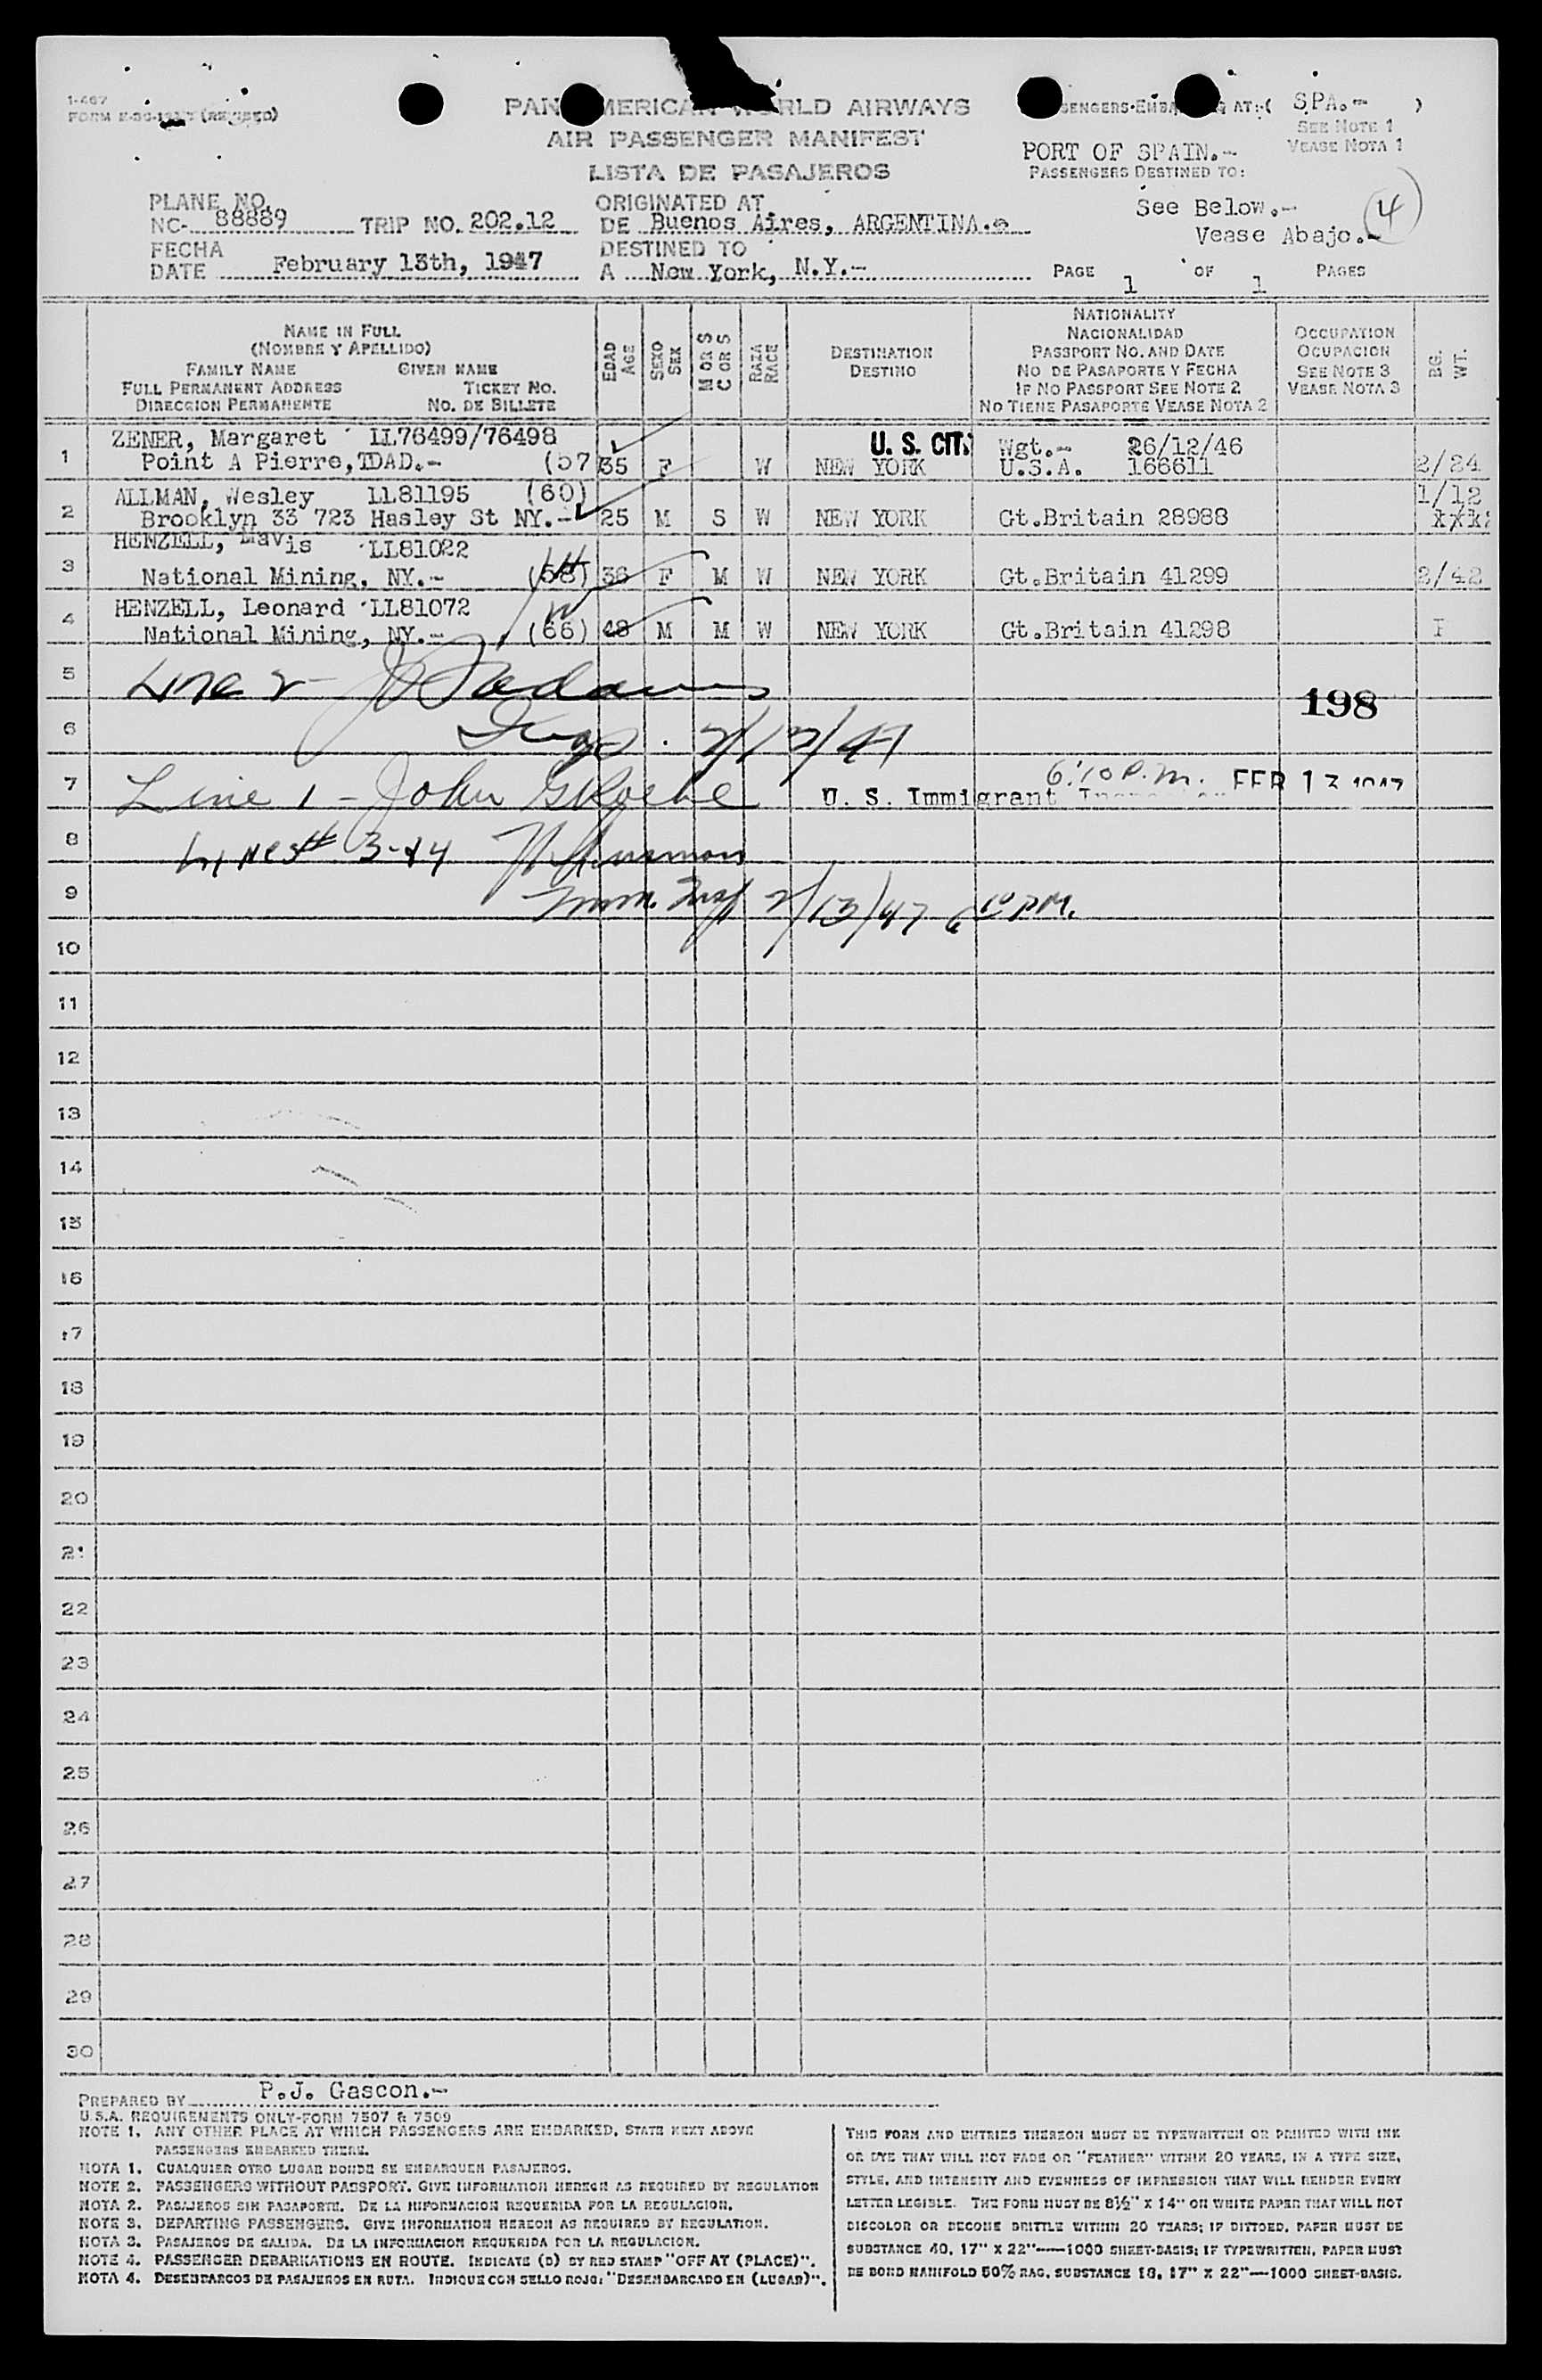 1-467
PAN AMERICAN WORLD AIRWAYS
AIR PASSENGER MANIFEST
LISTA DE PASAJEROS
AT:-( SPA.- )
SEE NOTE 1
VEASE NOTA 1
PORT OF SPAIN.-
PASSENGERS DESTINED TO:
See Below.-
Vease Abajo.-
4
PLANE NO.
NC- 88889 TRIP NO. 202.12
FECHA
DATE February 13th, 1947
ORIGINATED AT
DE Buenos Aires, ARGENTINA.
DESTINED TO
A New York, N.Y.-
PAGE 1 OF 1 PAGES
NAME IN FULL
(NOMBRE Y APELLIDO)
FAMILY NAME GIVEN NAME
FULL PERMANENT ADDRESS TICKET NO.
DIRECCION PERMANENTE NO. DE BILLETE
EDAD AGE
SEXO SEX
M OR S C OR S
RAZA RACE
DESTINATION
DESTINO
NATIONALITY
NACIONALIDAD
PASSPORT NO. AND DATE
NO DE PASAPORTE Y FECHA
IF NO PASSPORT SEE NOTE 2
NO TIENE PASAPORTE VEASE NOTA 2
OCCUPATION
OCUPACION
SEE NOTE 3
VEASE NOTA 3
BG. WT.
ZENER, Margaret LL76499/76498 U. S. CIT. Wgt.- 26/12/46
1 Point A Pierre, TDAD.- (57 35 F W NEW YORK U.S.A. 166611 2/24
ALLMAN, Wesley LL81195 (60) 1/12
2 Brooklyn 33 723 Hasley St NY.- 25 M S W NEW YORK Gt.Britain 28988
HENZELL, Mavis LL81022
3 National Mining, NY.- (58) 36 F M W NEW YORK Gt.Britain 41299 2/42
HENZELL, Leonard LL81072
4 National Mining, NY.- (66) 48 M M W NEW YORK Gt.Britain 41298
5
198
6
6:10 P.M. FEB 13 1947
7 Line 1 - John U. S. Immigrant
8 Lines# 3-&4
9 Imm. Insp 2/13/47 6 10 PM.
10
11
12
13
14
15
16
17
18
19
20
21
22
23
24
25
26
27
28
29
30
PREPARED BY P.J. Gascon.-
U.S.A. REQUIREMENTS ONLY-FORM 7507 & 7509
NOTE 1. ANY OTHER PLACE AT WHICH PASSENGERS ARE EMBARKED, STATE NEXT ABOVE
PASSENGERS EMBARKED THERE.
NOTA 1. CUALQUIER OTRO LUGAR DONDE SE EMBARQUEN PASAJEROS.
NOTE 2. PASSENGERS WITHOUT PASSPORT. GIVE INFORMATION HEREON AS REQUIRED BY REGULATION
NOTA 2. PASAJEROS SIN PASAPORTE. DE LA INFORMACION REQUERIDA POR LA REGULACION.
NOTE 3. DEPARTING PASSENGERS. GIVE INFORMATION HEREON AS REQUIRED BY REGULATION.
NOTA 3. PASAJEROS DE SALIDA. DE LA INFORMACION REQUERIDA POR LA REGULACION.
NOTE 4. PASSENGER DEBARKATIONS EN ROUTE. INDICATE (D) BY RED STAMP "OFF AT (PLACE)".
NOTA 4. DESEMBARCOS DE PASAJEROS EN RUTA. INDIQUE CON SELLO ROJO: "DESEMBARCADO EN (LUGAR)".
THIS FORM AND ENTRIES THEREON MUST BE TYPEWRITTEN OR PRINTED WITH INK
OR DYE THAT WILL NOT FADE OR "FEATHER" WITHIN 20 YEARS, IN A TYPE SIZE,
STYLE, AND INTENSITY AND EVENNESS OF IMPRESSION THAT WILL RENDER EVERY
LETTER LEGIBLE. THE FORM MUST BE 8½" X 14" ON WHITE PAPER THAT WILL NOT
DISCOLOR OR BECOME BRITTLE WITHIN 20 YEARS; IF DITTOED, PAPER MUST BE
SUBSTANCE 40, 17" X 22"—1000 SHEET-BASIS; IF TYPEWRITTEN, PAPER MUST
BE BOND MANIFOLD 50% RAG, SUBSTANCE 18, 17" X 22"—1000 SHEET-BASIS.